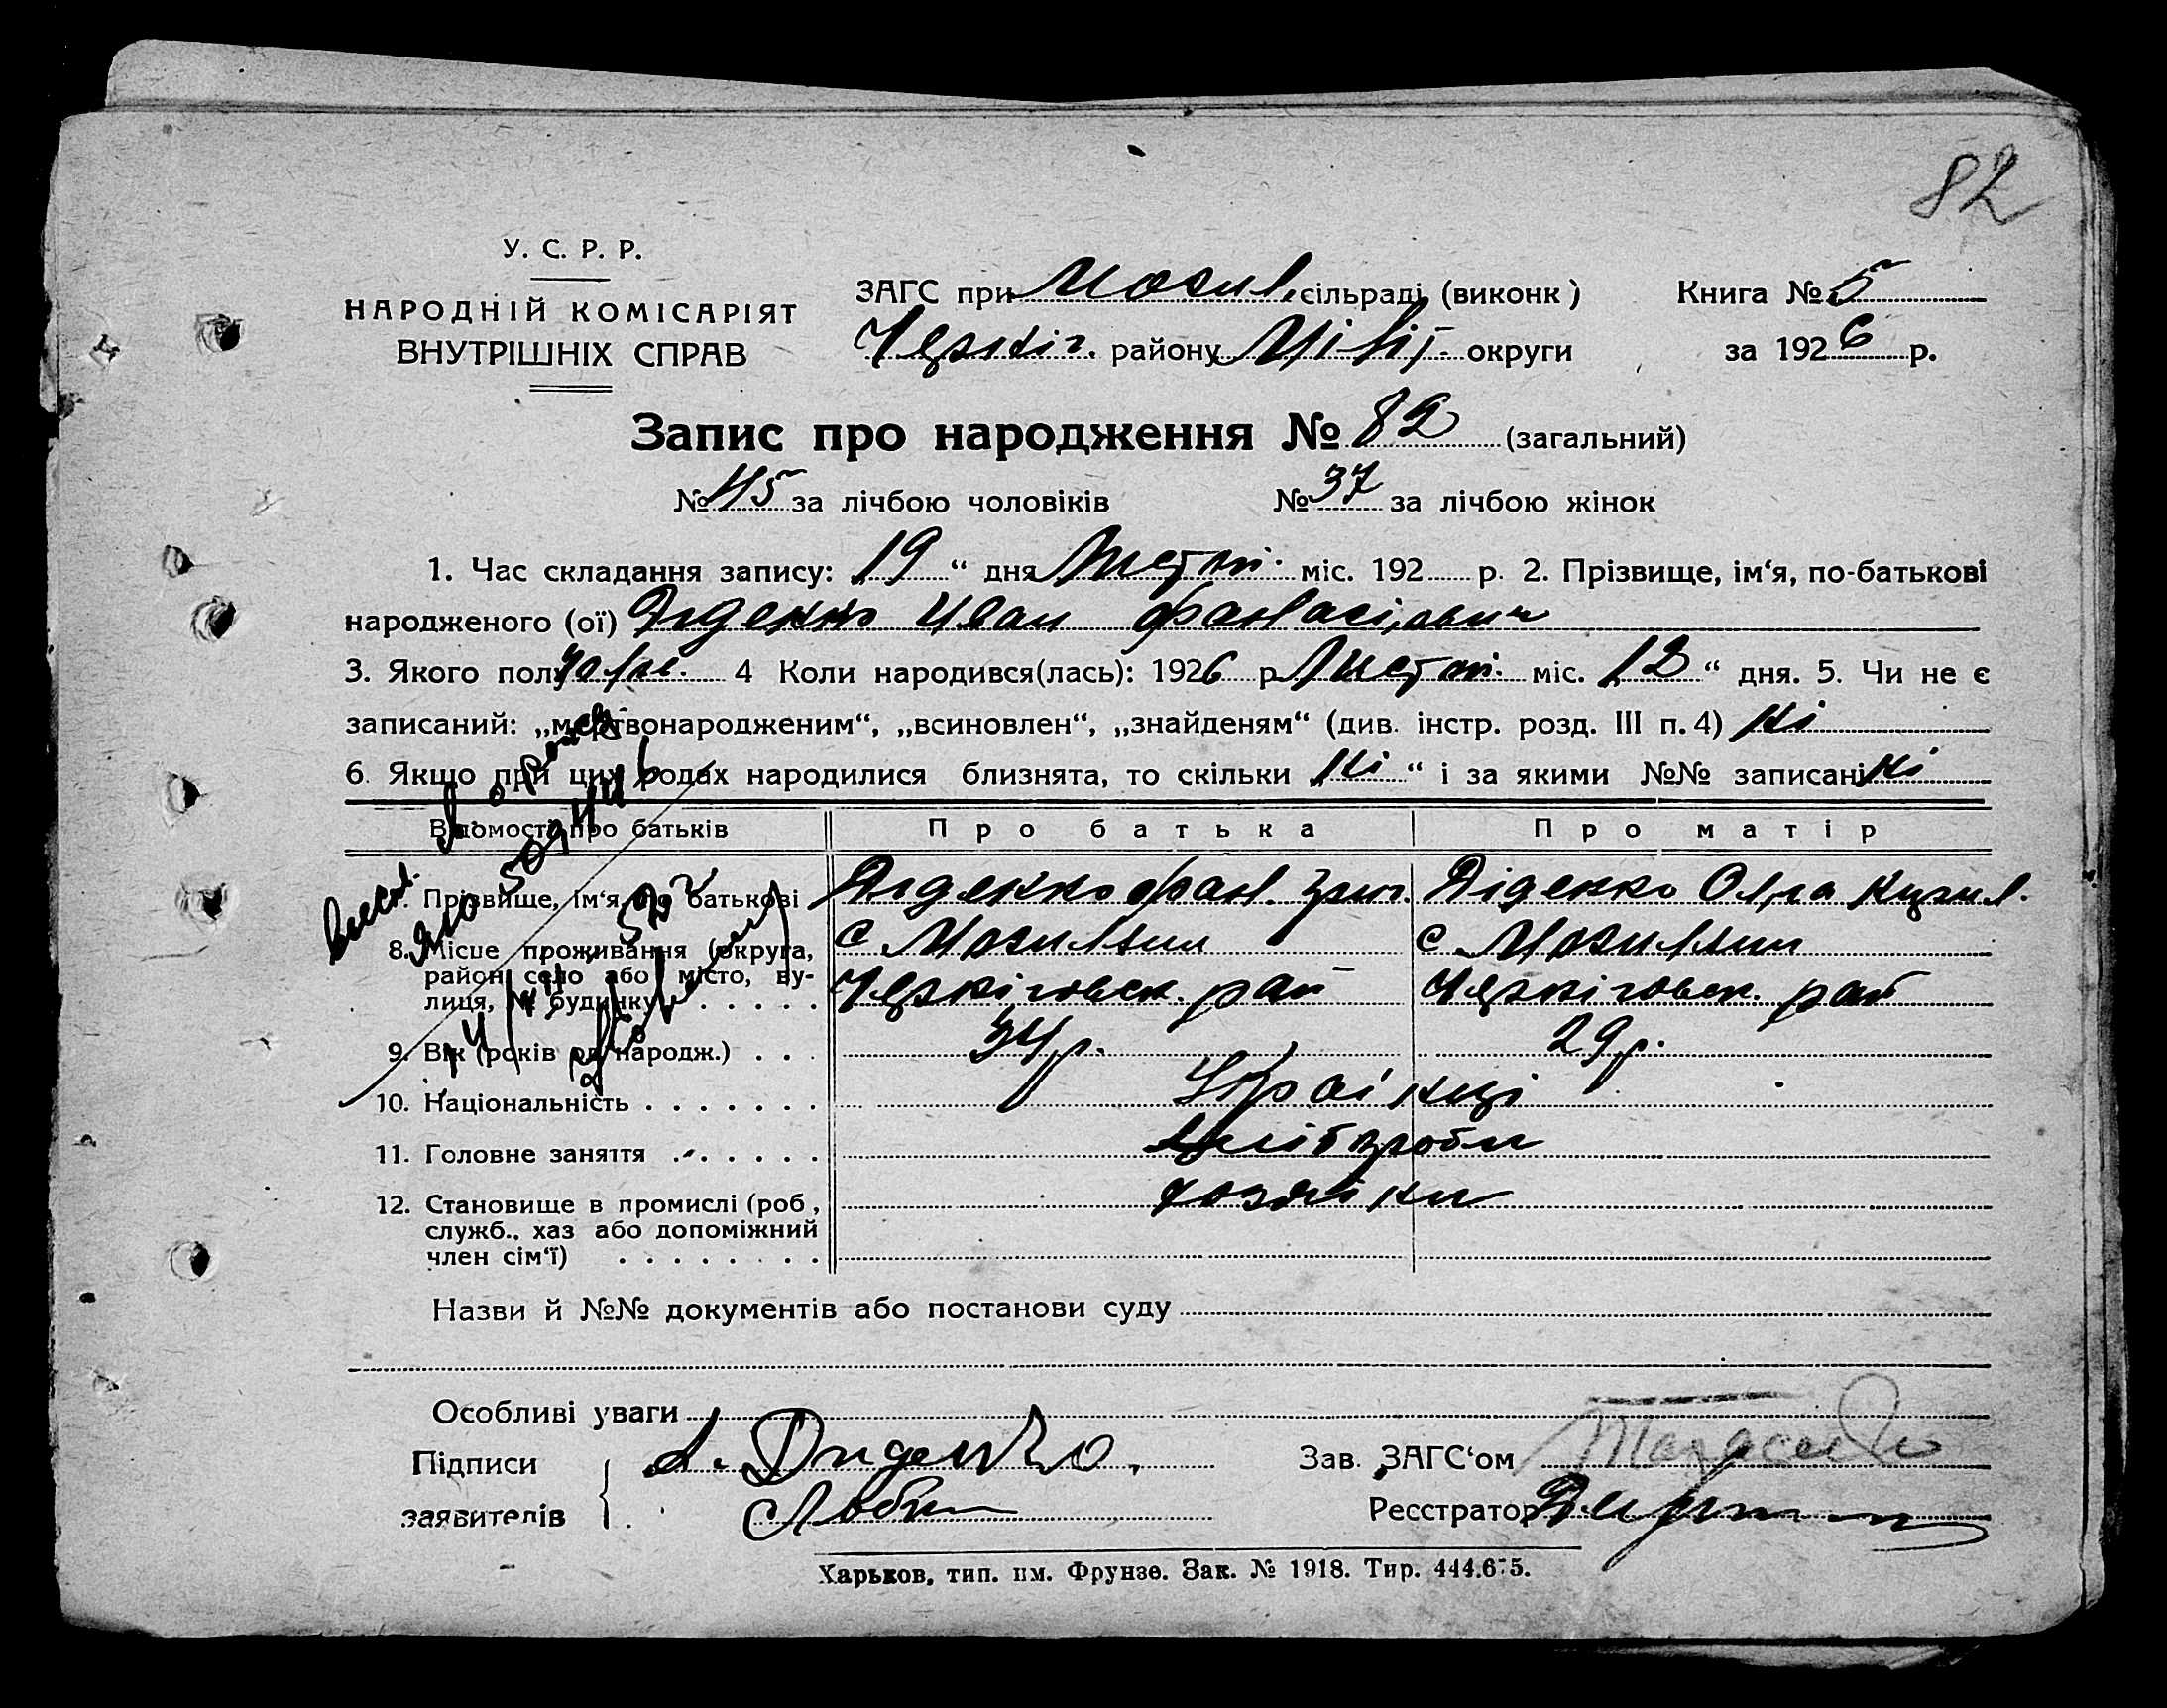 82
У. С. Р. Р.
НАРОДНІЙ КОМІСАРІЯТ
ВНУТРІШНІХ СПРАВ
ЗАГС при Могил. сільраді (виконк) Книга № 5
Черніг. району округи за 1926 р.
Запис про народження № 82 (загальний)
№ 45 за лічбою чоловіків № 37 за лічбою жінок
1. Час складання запису: 19 “ дня Листп. міс. 192 р. 2. Прізвище, ім‘я, по-батькові
народженого (ої) Діденко Иван
3. Якого полу чол. 4 Коли народився(лась): 1926 р Листп. міс. 12 “ дня. 5. Чи не є
записаний: „мертвонародженим“, „всиновлен“, „знайденям“ (див. інстр. розд. III п. 4) Ні
6. Якщо при цих родах народилися близнята, то скільки Ні “ і за якими №№ записані Ні
Відомості про батьків Про батька Про матір
7. Прізвище, ім‘я, по батькові Діденко Фан. Григ. Діденко Олга
8. Місце проживання (округа, с Могиляни с Могиляни
район село або місто, ву-
лиця, № будинку) Черніговск. рай Черніговск. рай
9. Вік (років од народж.) 34 р. 29 р.
10. Національність Украінці
11. Головне заняття Хлібороби
12. Становище в промислі (роб, хозяіки
служб., хаз або допоміжний
член сім‘ї)
Назви й №№ документів або постанови суду
Особливі уваги
Підписи А. Диденко. Зав. ЗАГС‘ом Тарасенко
заявителів Реєстратор
Харьков, тип. им. Фрунзе. Зак. № 1918. Тир. 444.675.